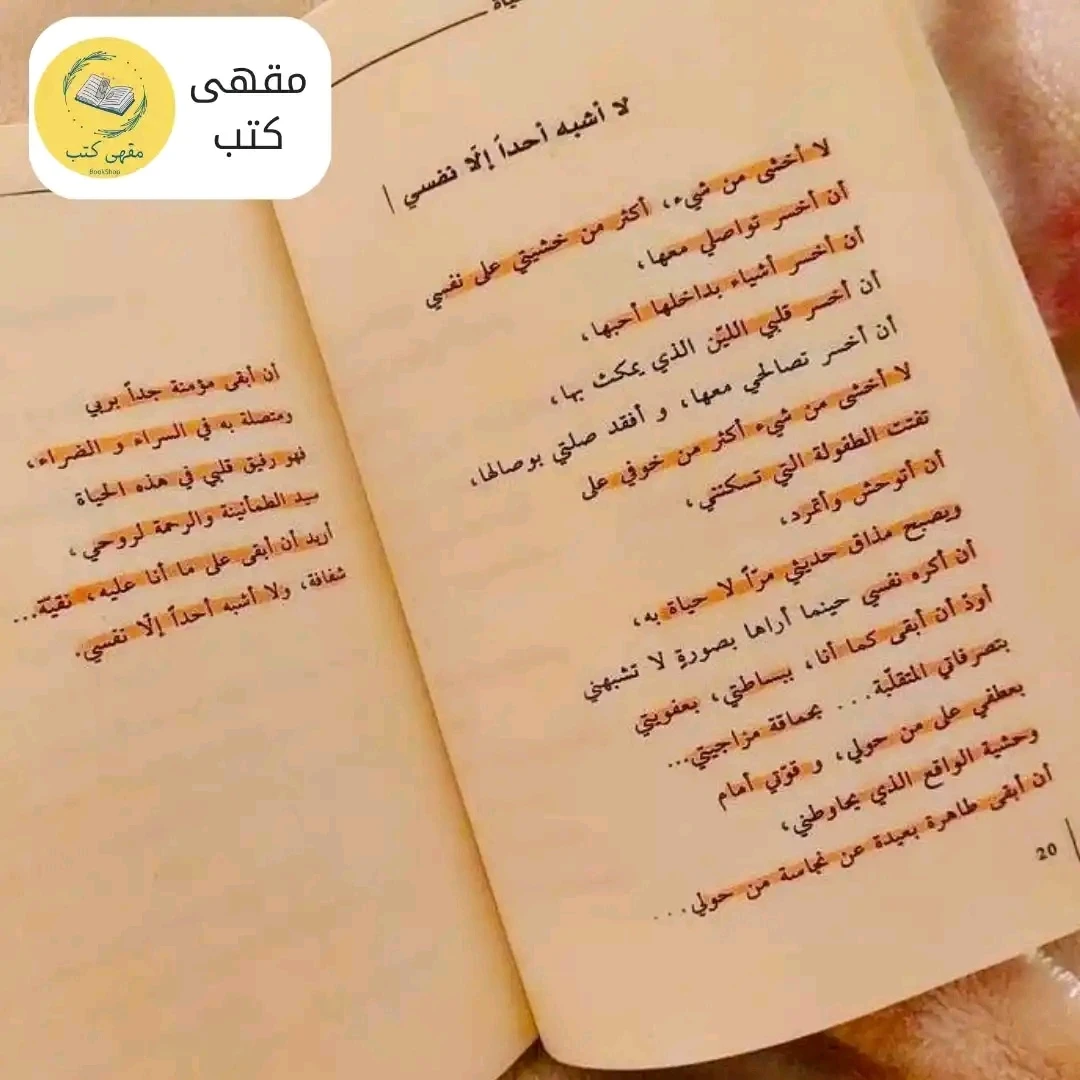 مقهى
كتب
مقهى كتب
BookShop
لا أشبه أحداً إلّا نفسي
لا أخشى من شيء، أكثر من خشيتي على نفسي
أن أخسر تواصلي معها،
أن أخسر أشياء بداخلها أحبها،
أن أخسر قلبي الليّن الذي يمكث بها،
أن أخسر تصالحي معها، و أفقد صلتي بوصالها،
لا أخشى من شيء أكثر من خوفي على
تفتت الطفولة التي تسكنني،
أن أتوحش وأتمرد،
ويصبح مذاق حديثي مرّاً لا حياة به،
أن أكره نفسي حينما أراها بصورة لا تشبهني
أودّ أن أبقى كما أنا، ببساطتي، بعفويتي
بتصرفاتي المتقلّبة... بحماقة مزاجيتي...
بعطفي على من حولي، و قوّتي أمام
وحشية الواقع الذي يحاوطني،
أن أبقى طاهرة بعيدة عن نجاسة من حولي...
20
أن أبقى مؤمنة جداً بربي
ومتصلة به في السراء و الضراء،
فهو رفيق قلبي في هذه الحياة
سيد الطمأنينة والرحمة لروحي،
أريد أن أبقى على ما أنا عليه، نقيّة...
شفافة، ولا أشبه أحداً إلّا نفسي.